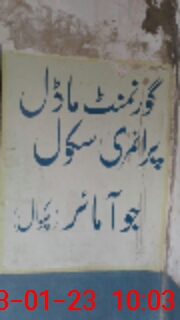 گورنمنٹ ماڈل
پرائمری سکول
جوآمائر (چکوال)
3-01-23 10:03